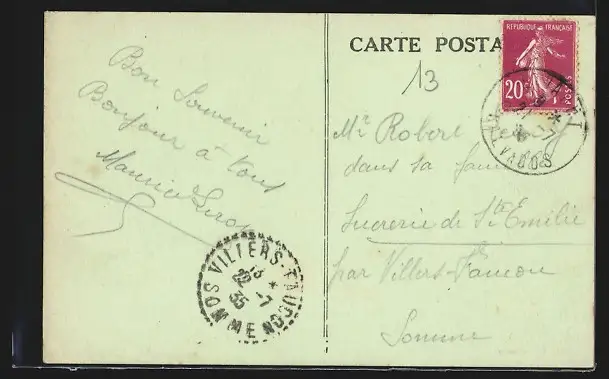 CARTE POSTA
REPUBLIQUE FRANÇAISE
20c
POSTES
13
Bon Souvenir
Bonjour à Vous
Maurice Leroy
Mr Robert
dans sa famille
Sucrerie de Ste Emilie
par Villers-Faucon
Somme
VILLERS-FAUCON
13 *
22 -7
35
SOMME